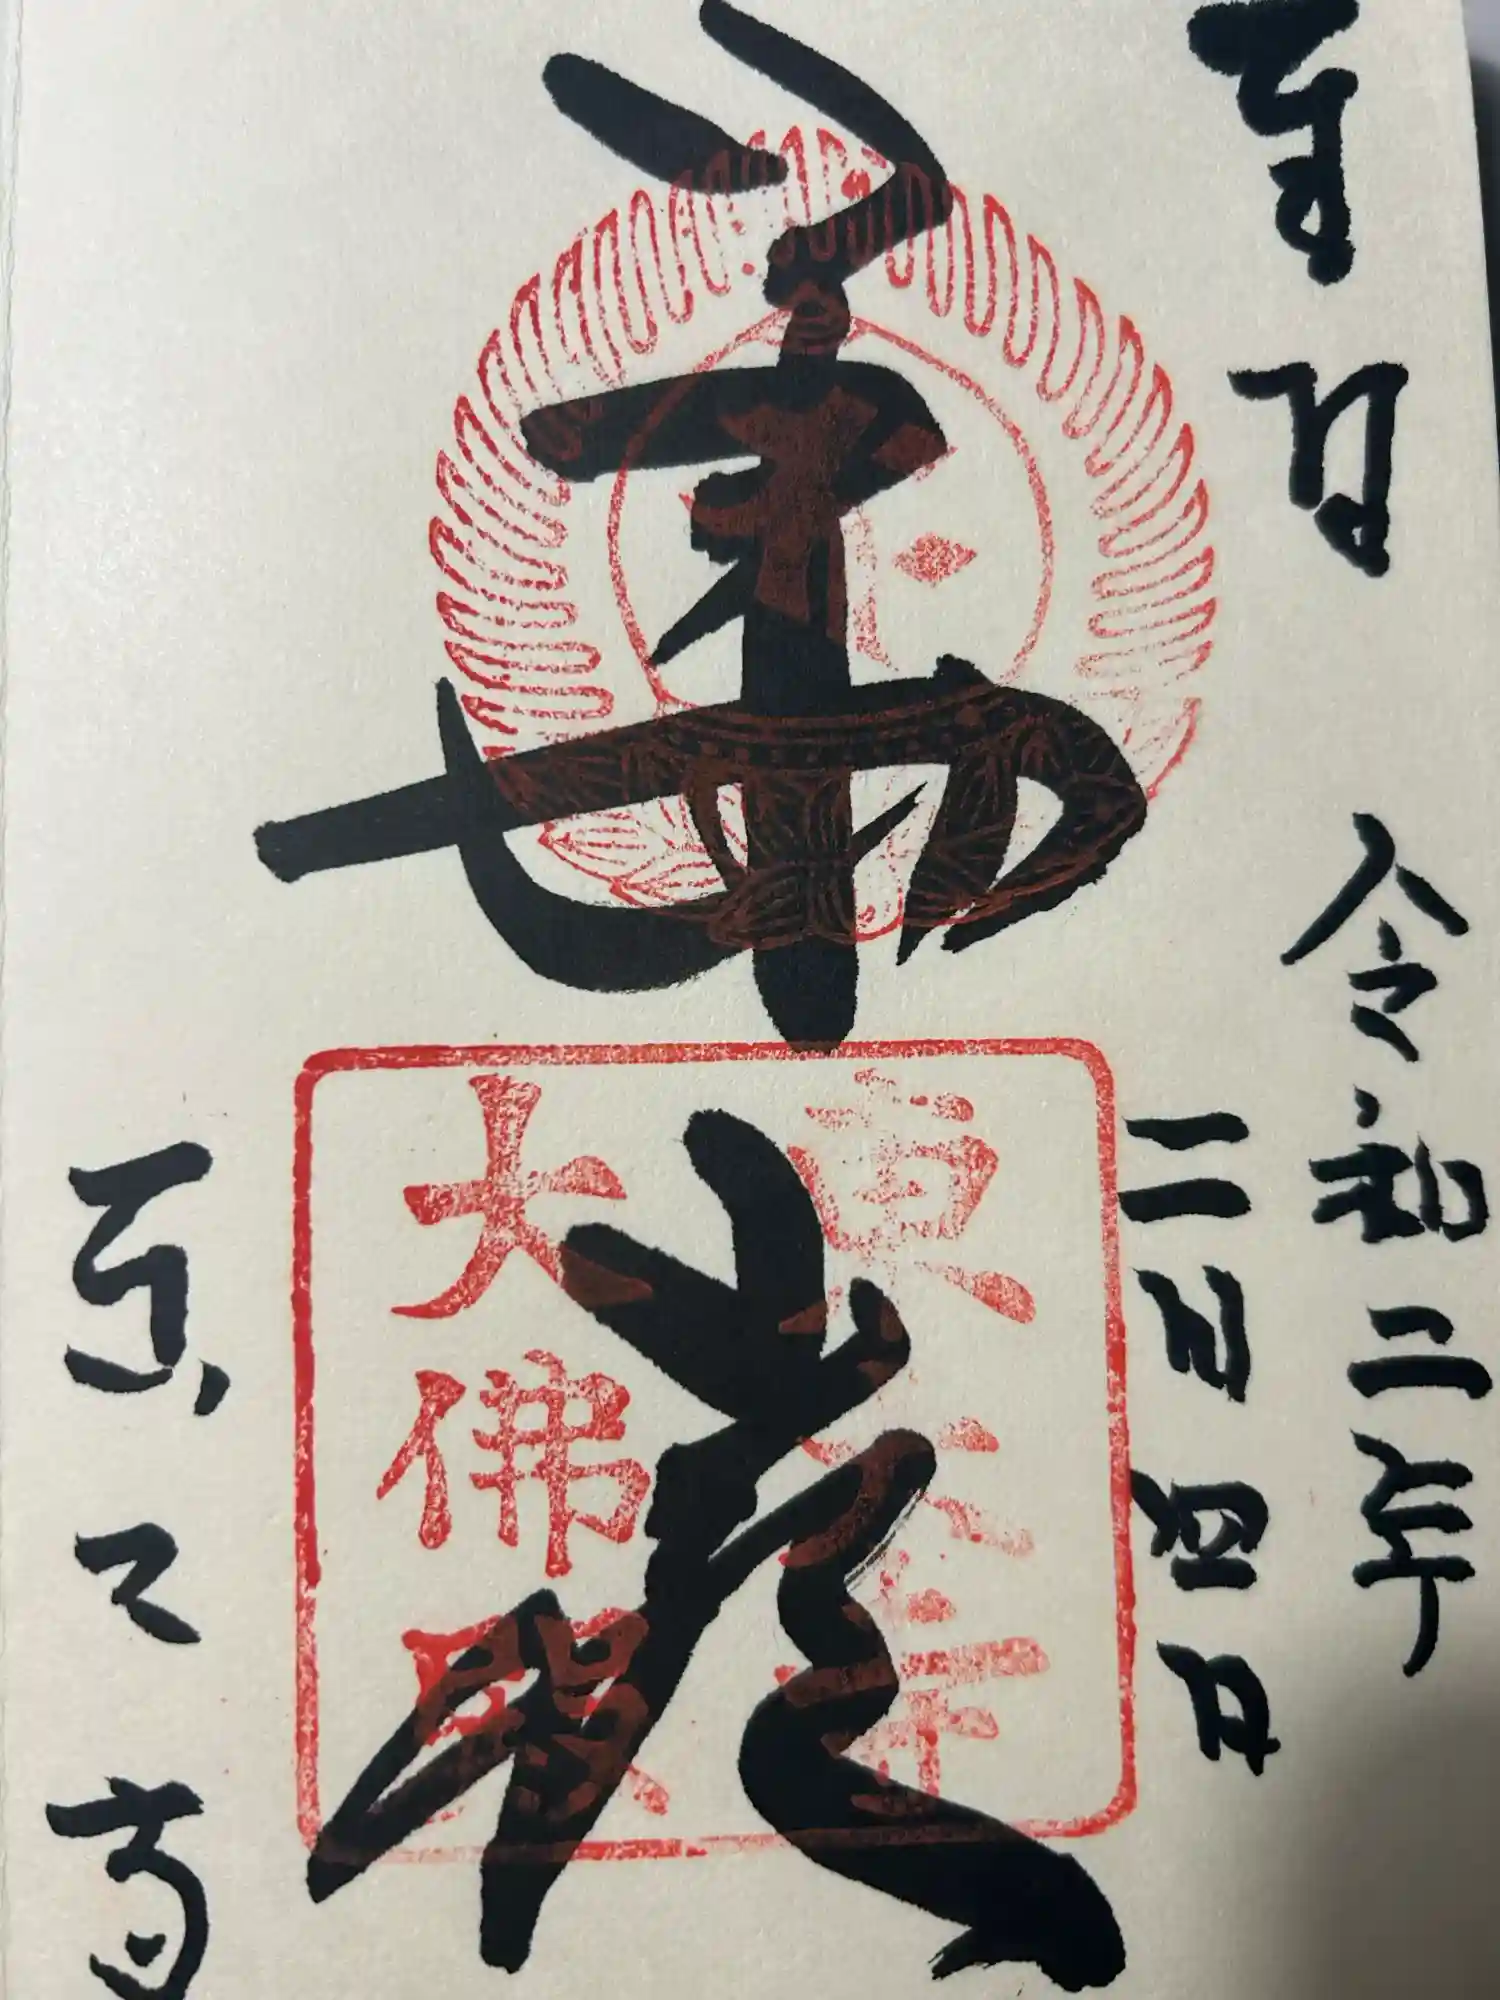 奉拝
令和二年
二月四日
華厳
東大寺
大佛殿
東大寺